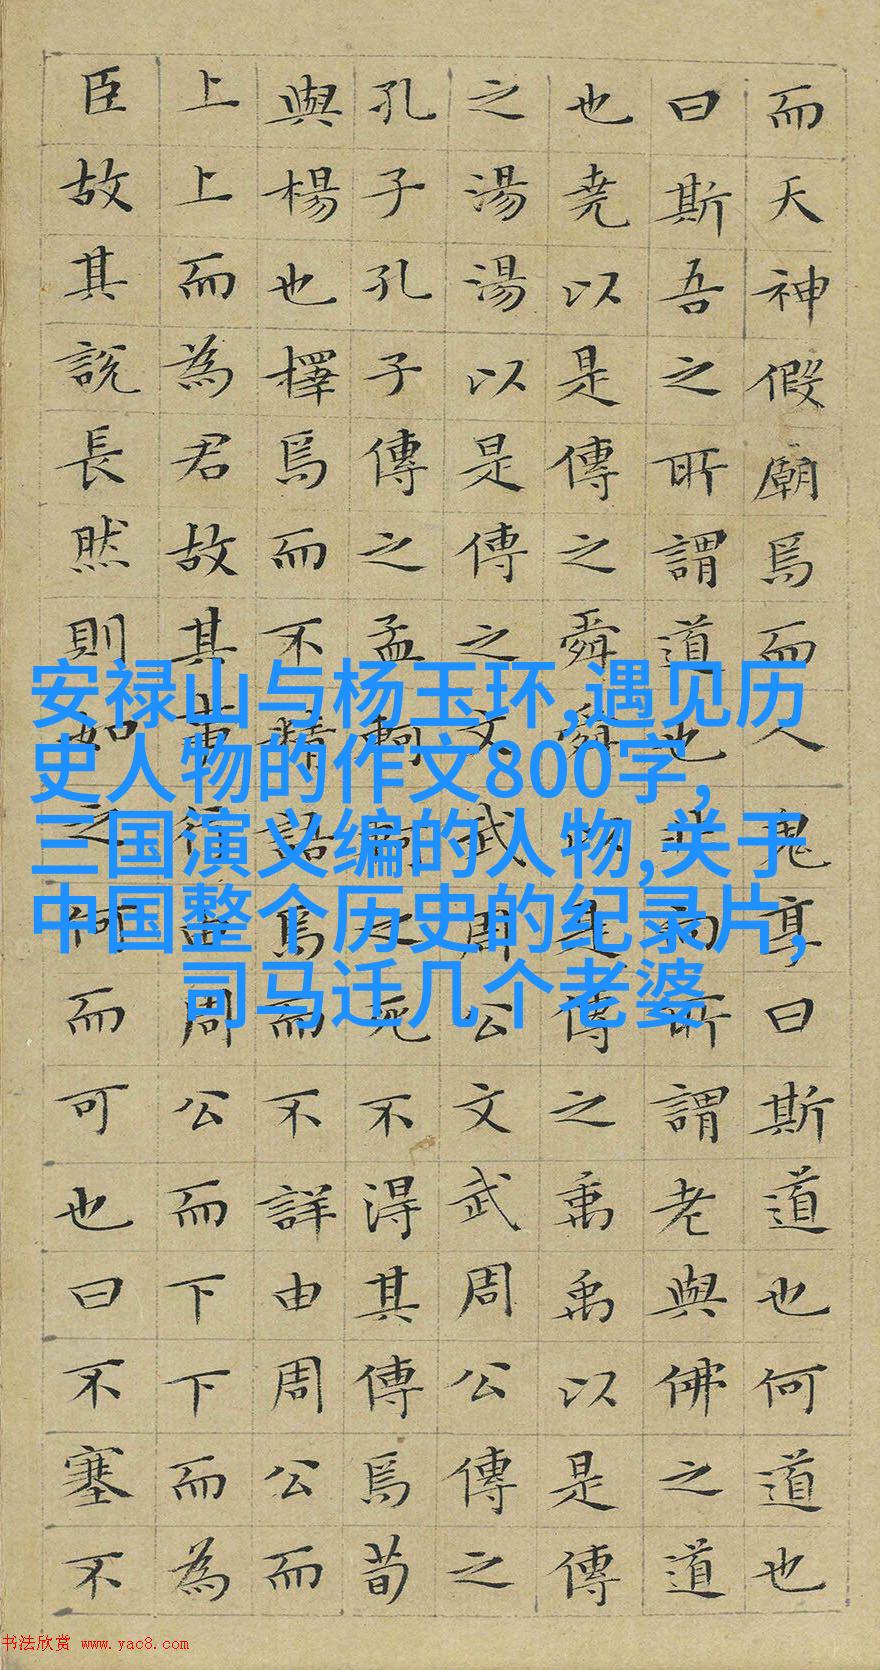 而天神假廟焉而人鬼享曰斯道也何道也
曰斯吾之所謂道也非向所謂老與佛之道
也堯以是傳之舜舜以是傳之禹禹以是傳
之湯湯以是傳之文武周公文武周公傳之
孔子孔子傳之孟軻軻之死不得其傳焉荀
與楊也擇焉而不精語焉而不詳由周公而
上上而為君故其事行由周公而下下而為
臣故其說長然則如之何而可也曰不塞不
安禄山与杨玉环,遇见历
史人物的作文800字,
三国演义编的人物,关于
中国整个历史的纪录片,
司马迁几个老婆
书法欣赏 www.yac8.com